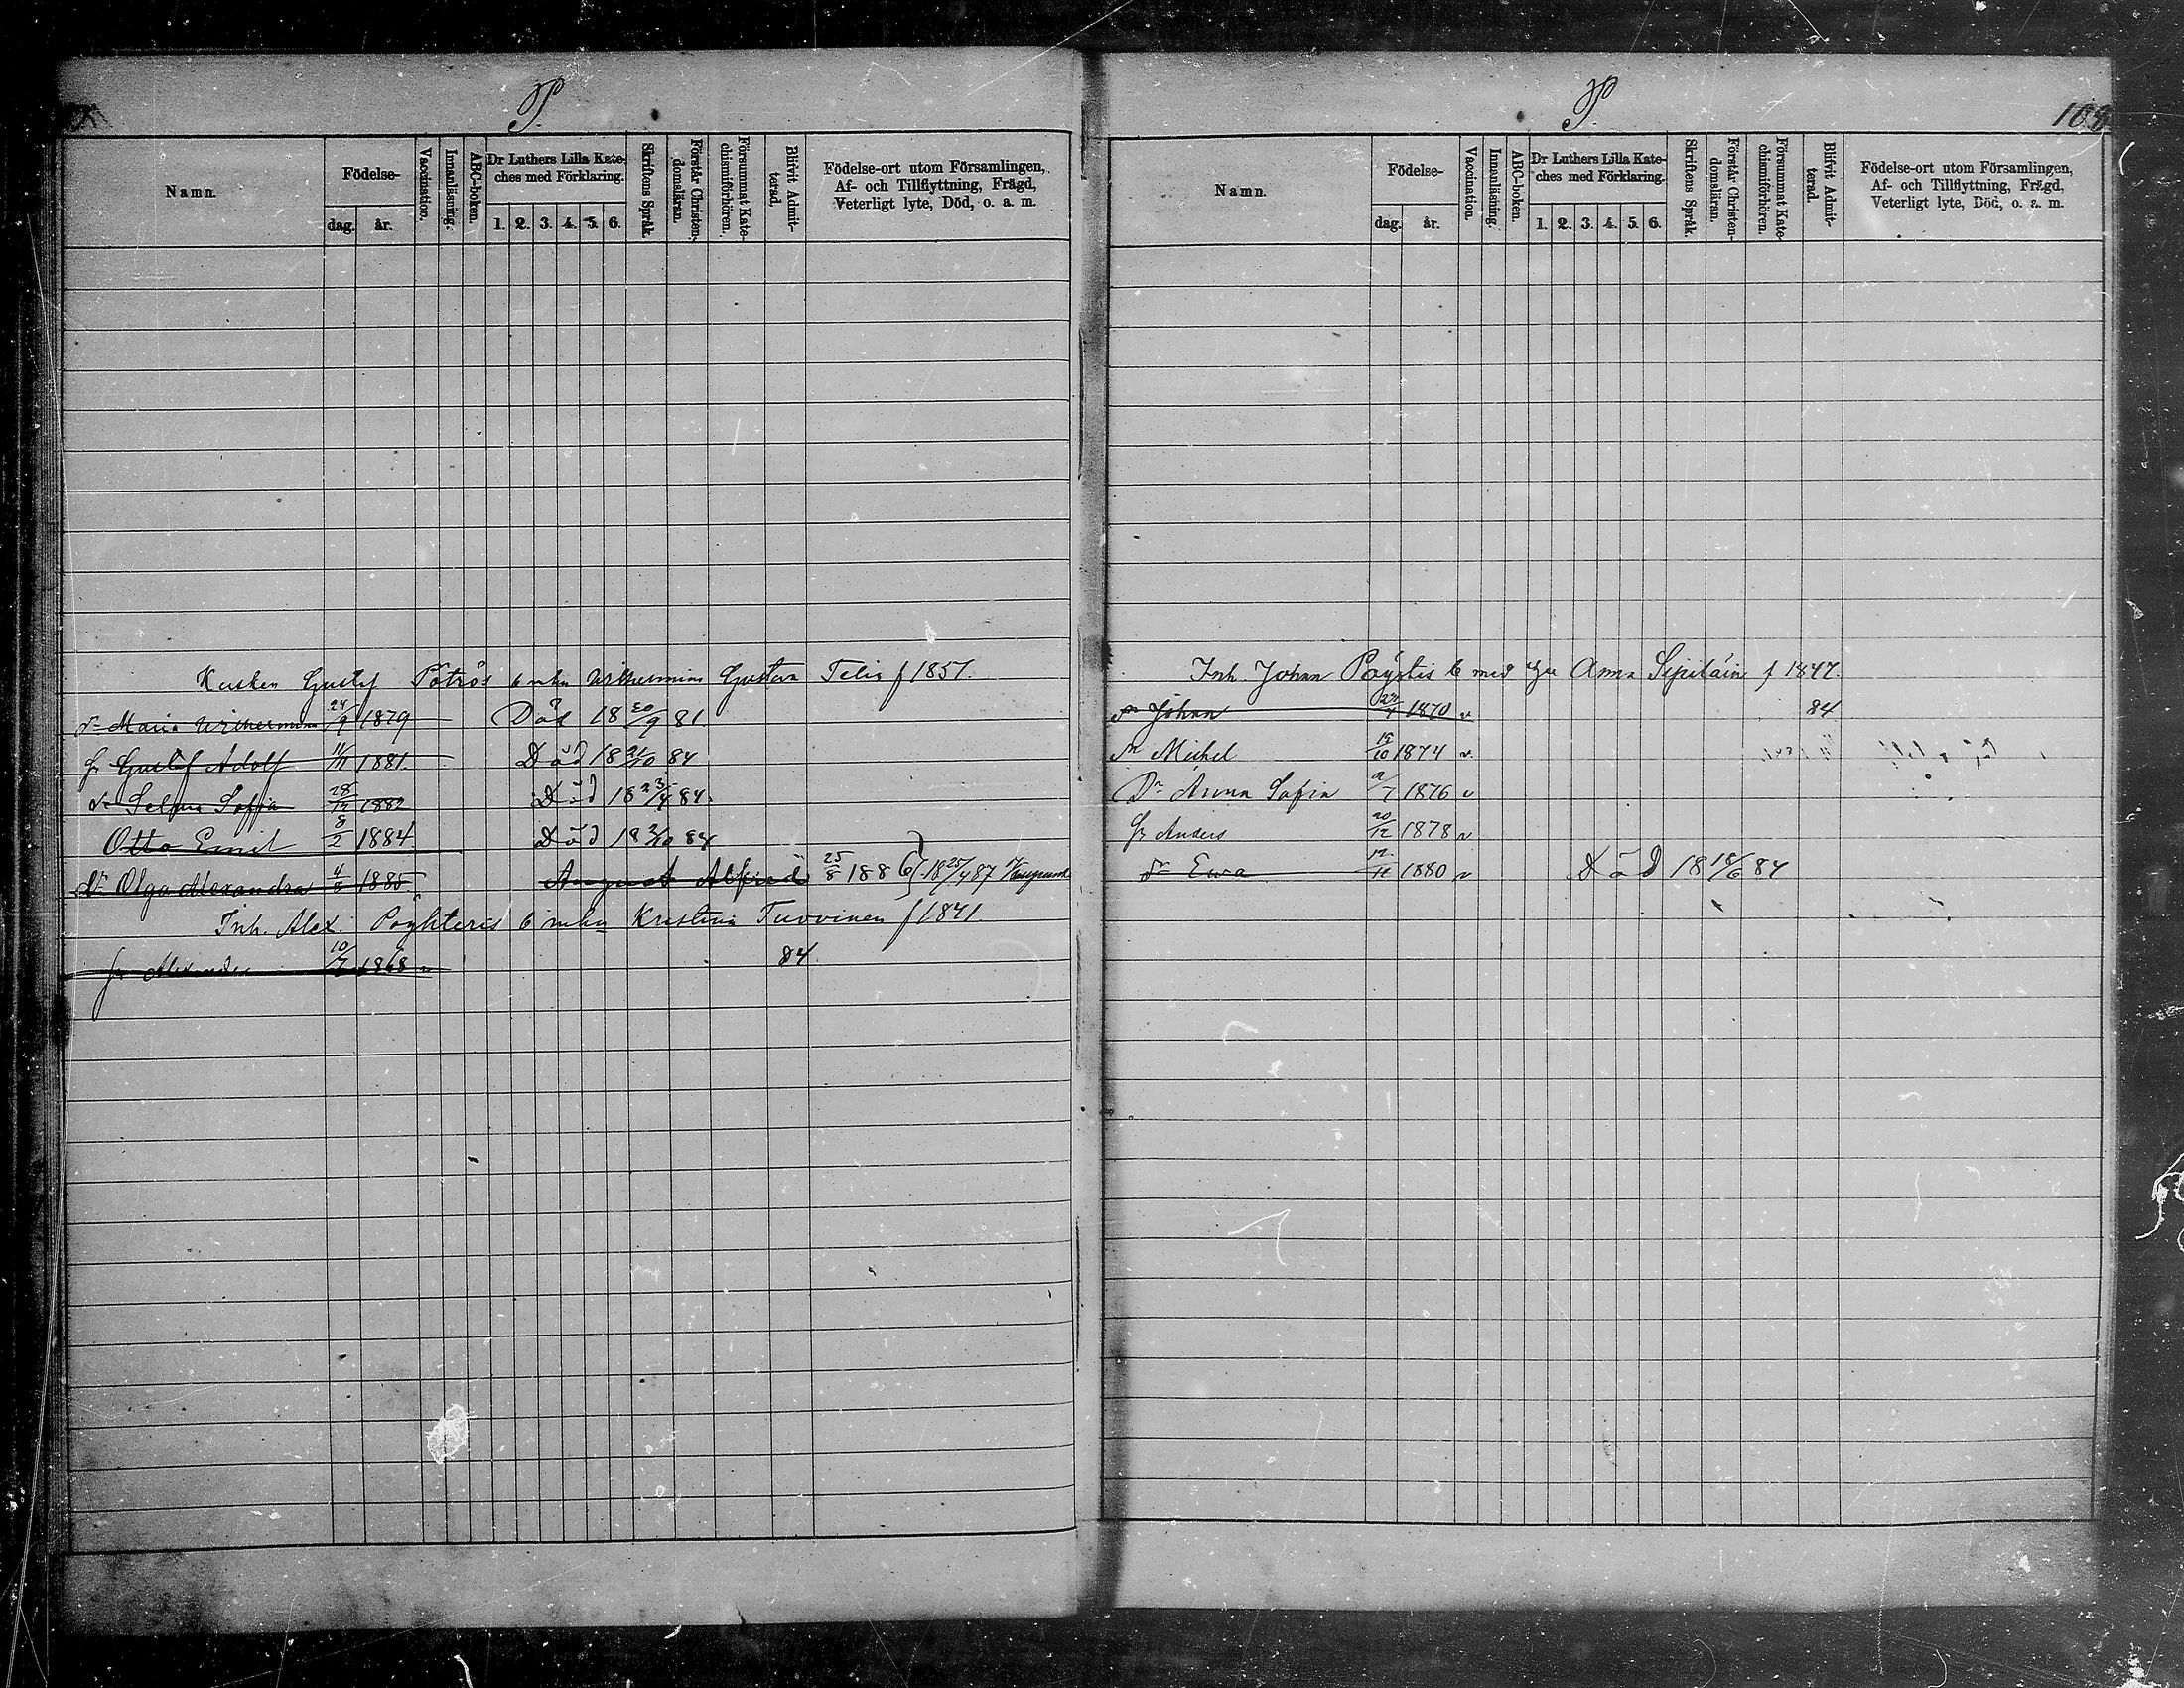 P.
Namn. Födelse- dag. år. Vaccination. Innanläsning. ABC-boken. Dr Luthers Lilla Kate-ches med Förklaring. 1. 2. 3. 4. 5. 6. Skriftens Språk. Förstår Christen-domsläran. Försummat Kate-chismiförhören. Blifvit Admit-terad. Födelse-ort utom Församlingen, Af- och Tillflyttning, Frägd, Veterligt lyte, Död, o. a. m.
Kusken Gustaf Pötrös Wilhelmina Gustava Telin f 1851.
Dr Maria Wilhelmina 24/9 1879 Död 18 30/9 81.
Gustaf Adolf 11/11 1881. Död 18 21/10 84
Dr Selma Sofia 28/12 1882 Död 18 23/4 84.
Otto Emil 8/2 1884 Död 18 2/10 84
Dr Olga Alexandra 4/5 1885. August Alfred 25/8 1886} 18 25/4 87
Inh. Alex. Poyhteris Kristina Tuovinen f 1841.
Alexander 10/7 1868 v 84
P.
108
Namn. Födelse- dag. år. Vaccination. Innanläsning. ABC-boken. Dr Luthers Lilla Kate-ches med Förklaring. 1. 2. 3. 4. 5. 6. Skriftens Språk. Förstår Christen-domsläran. Försummat Kate-chismiförhören. Blifvit Admit-terad. Födelse-ort utom Församlingen, Af- och Tillflyttning, Frägd, Veterligt lyte, Död, o. a. m.
Inh. Johan Pöystis med Anna Sipiläin f 1847.
Johan 1870 v 84
Michel 15/10 1874 v.
Dr Anna Sofia 2/7 1876 v
Anders 20/12 1878 v
Dr Ewa 1880 v Död 18 18/6 84